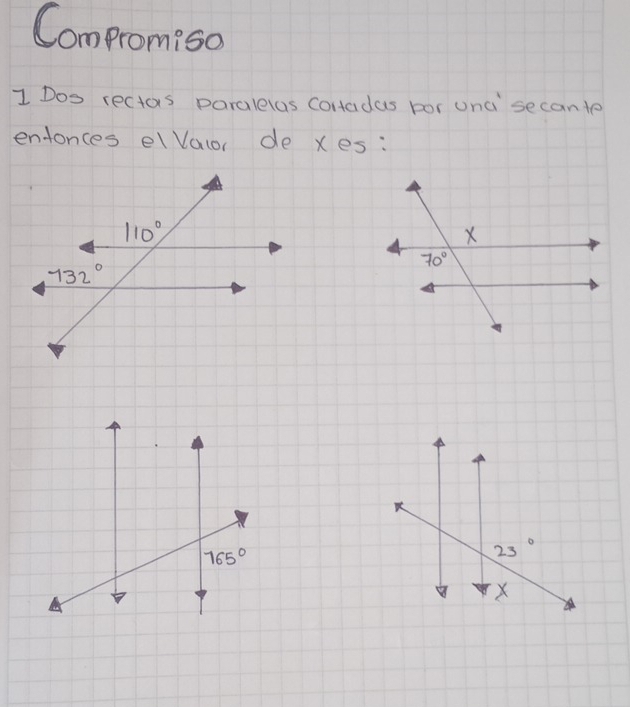 Compromiso
1 Dos rectas paralelas cortadas por una secante
entonces el Valor de x es:
110°
x
132°
70°
165°
23°
x